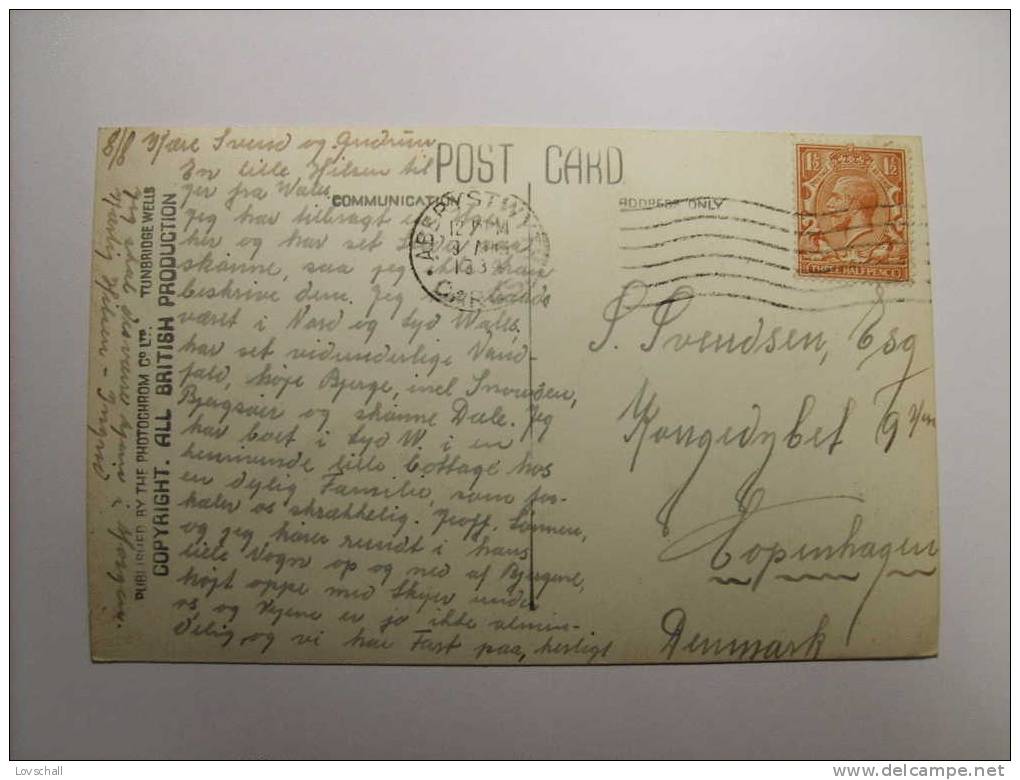 8/8 Kære Svend og Gudrun
En lille Hilsen til
jer fra Wales
Jeg har tilbragt
her og har set
skønne, saa jeg ikke kan
beskrive dem. Jeg
været i Nord og Syd Wales,
har set vidunderlige Vand-
fald, høje Bjerge, incl. Snowdon,
Bjergsøer og skønne Dale. Jeg
har boet i Syd W. i en
henrivende lille Cottage hos
en dejlig Familie, som for-
kæler os skrækkelig. Geoff. Sønnen,
og jeg kører rundt i hans
lille Vogn op og ned af Bjergene,
højt oppe med Skyer under
os, og Vejene er jo ikke almin-
delig, og vi har Fart paa, herligt
Jeg skal i Morgen.
Kærlig Hilsen - Ingrid
POST CARD
COMMUNICATION
ADDRESS ONLY
ABERYSTWYTH
12 PM
193
CARDS
1½ 1½
THREE HALFPENCE
S. Svendsen, Esq
Kongedybet 9
Copenhagen
Denmark
PUBLISHED BY THE PHOTOCHROM CO LTD. TUNBRIDGE WELLS
COPYRIGHT. ALL BRITISH PRODUCTION
Lovschall
delcampe.net